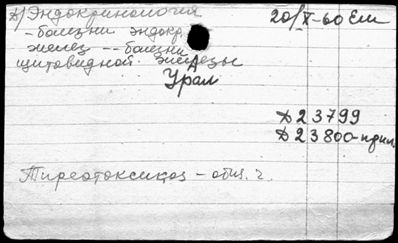 А) Эндокринология
20/X-60 Ем
- болезни эндокр.
желез -- болезни
щитовидной железы
Урал
Д23799
Д23800-прил
Тиреотоксикоз - общ. ч.